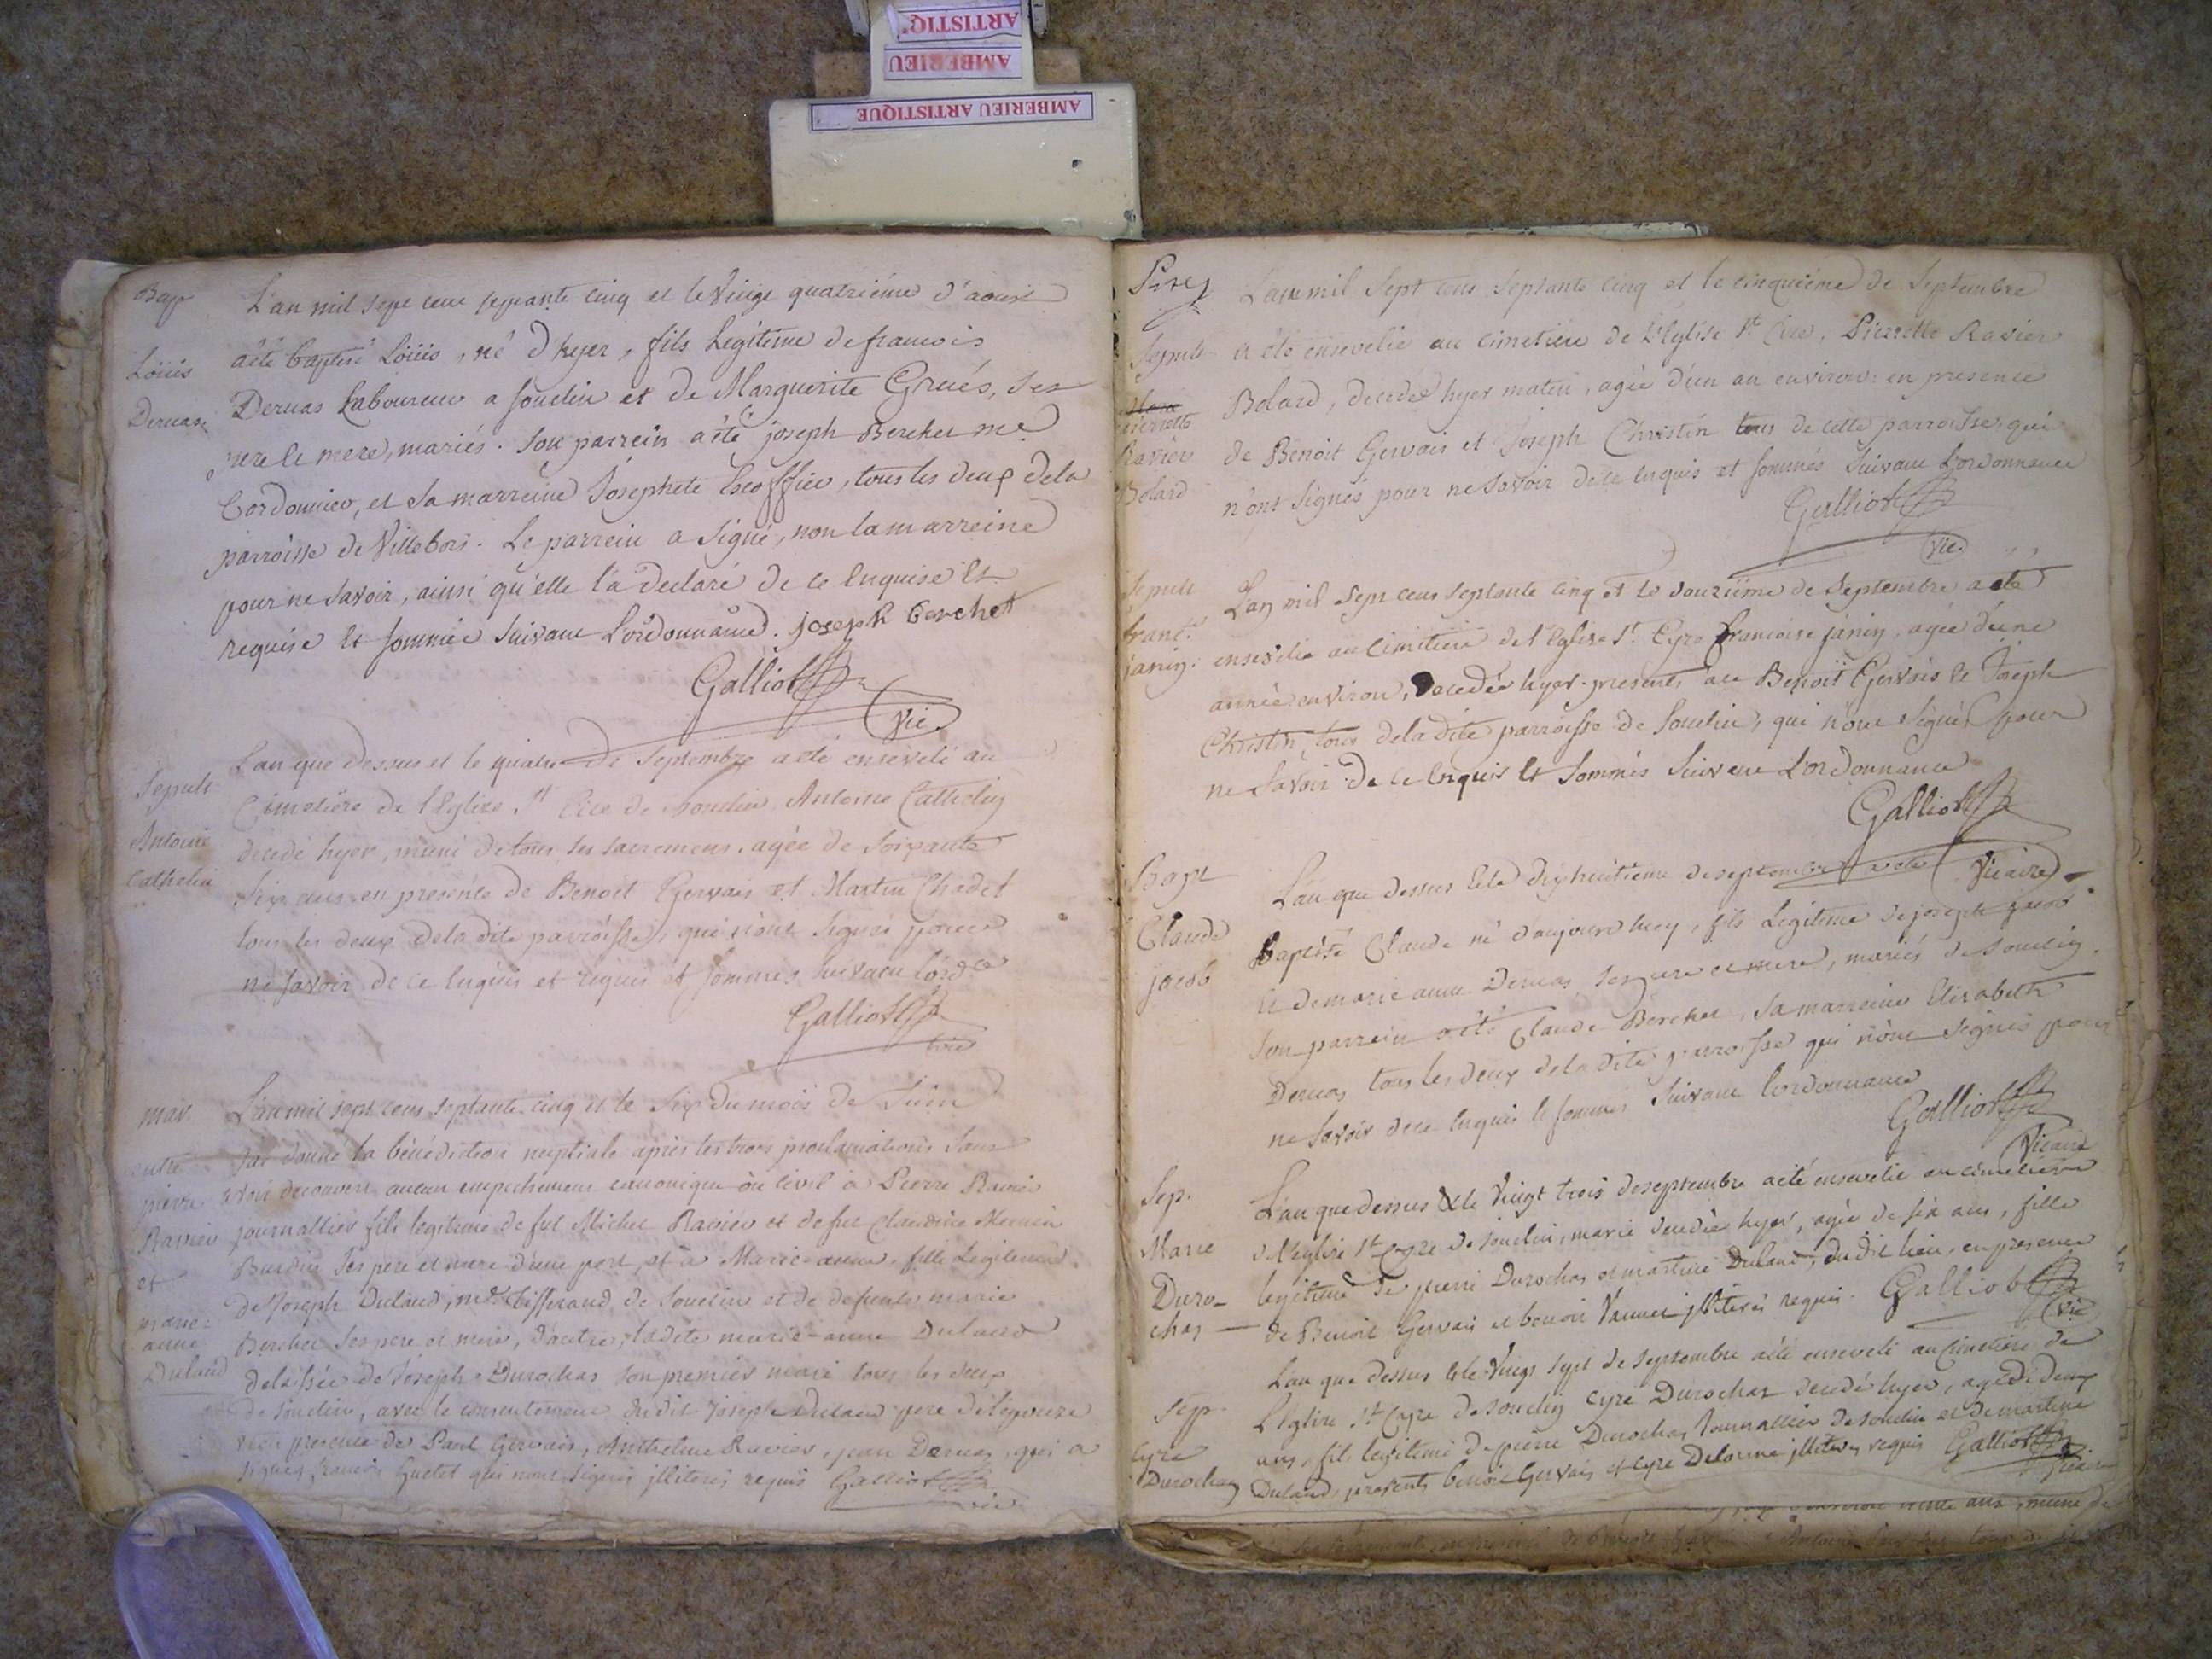 ARTISTIQ
AMBERIEU
AMBERIEU ARTISTIQUE
Bap
Loüis
Deruas
L'an mil sept cent septante cinq et le vingt quatriéme d'aoust
a été baptisé Loüis, né d'hyer, fils Legitime de francois
Deruas Laboureur a souclin et de Marguerite Grués, ses
pere et mere, mariés. son parrein a été joseph Berchet me
Cordonnier, et sa marreine Josephete Escoffier, tous les deux de la
parroisse de Villebois. Le parrein a signé, non la marreine
pour ne savoir, ainsi qu'elle l'a declaré de ce Enquise Et
requise et sommée suivant L'ordonnance. joseph berchet
Galliot
vic.
Sepult.
Antoine
Cathelin
L'an que dessus et le quatre de Septembre a été enséveli au
Cimetiére de l'Eglise st Cire de souclin Antoine Cathelin
décedé hyer, muni de tous ses sacremens, agée de soixante
six ans en presénce de Benoit Gervais et Martin Chadet
tous les deux de la dite parroisse, qui n'ont signés pour
ne savoir de ce enquis et requis et sommés suivant l'ordce
Galliot
vic
mar.
entre
pierre
Ravier
et
marie-
anne
Dulaud
L'an mil sept cens septante cinq et le six du mois de Juin
j'ai donné la bénédiction nuptiale aprés les trois proclamations sans
avoir découvert aucun empechement canonique ou civil a Pierre Ravier
journallier fils legitime de fut Michel Ravier et de fut Claudine
Burdin ses pere et mere d'une part, et a Marie-anne, fille Legitime
de Joseph Dulaud, me Tisserand de Souclin et de defunte marie
Berchet ses pere et mere, d'autre, la dite marie-anne Dulaud
delaissée de Joseph Durochas son premiér mari tous les deux
de souclin, avec le consentement dudit Joseph Dulaud pere de l'epouse
et en presence de Paul Gervais, Anthelme Ravier, jean Deruas, qui a
signés, francois Guetet qui n'ont signés jlliterés requis Galliot
vic
Sepult.
pierrette
Ravier
Bolard
L'an mil sept cens septante cinq et le cinquiéme de Septembre
a été ensevelie au cimetiere de L'Eglise st Cire, Pierrette Ravier
Bolard, decedée hyer matin, agée d'un an environ: en presence
de Benoit Gervais et Joseph Christin tous de cette parroisse, qui
n'ont signés pour ne savoir de ce enquis et sommés suivant L'ordonnance
Galliot
vic.
Sepult
franc.se
janin.
L'an mil sept cens septante cinq et le douziéme de Septembre a été
ensevelie au Cimitiere de l'Eglise st Cyre francoise janin, agée d'une
année environ, decedée hyer. presents ... Benoit Gervais et Joseph
Christin, tous de la dite parroisse de souclin, qui n'ont signés pour
ne savoir de ce enquis et sommés suivant L'ordonnance
Galliot
Vicaire
Bapt
Claude
jacob
L'an que dessus et le dixhuitiéme de septembre a été
baptisé Claude né d'aujourd'huy, fils Legitime de joseph jacob
et de marie anne Deruas, ses pere et mere, mariés de souclin.
son parrein a été Claude Berchet, sa marreine Elisabeth
Deruas tous les deux de la dite parroisse qui n'ont signés pour
ne savoir de ce enquis et sommés suivant l'ordonnance
Galliot
Vicaire
Sep.
Marie
Duro-
chas
L'an que dessus & le vingt trois de septembre a été ensevelie au cimetiére
de l'Eglise st Cyre de souclin, marie decedée hyer, agée de six ans, fille
legitime de pierre Durochas et martine Dulaud, dudit lieu, en presence
de Benoit Gervais et benoit Vannier jlliterés requis. Galliot
vic
Sep.
Cyre
Durochas
L'an que dessus et le vingt sept de septembre a été enseveli au cimetiére de
L'Eglise st Cyre de souclin Cyre Durochas decedé hyer, agé de deux
ans, fils legitime de pierre Durochas Journallier de souclin et de martine
Dulaud, presents benoit Gervais et Cyre Delorme jlliterés requis Galliot
vicaire
trente ans, munie de